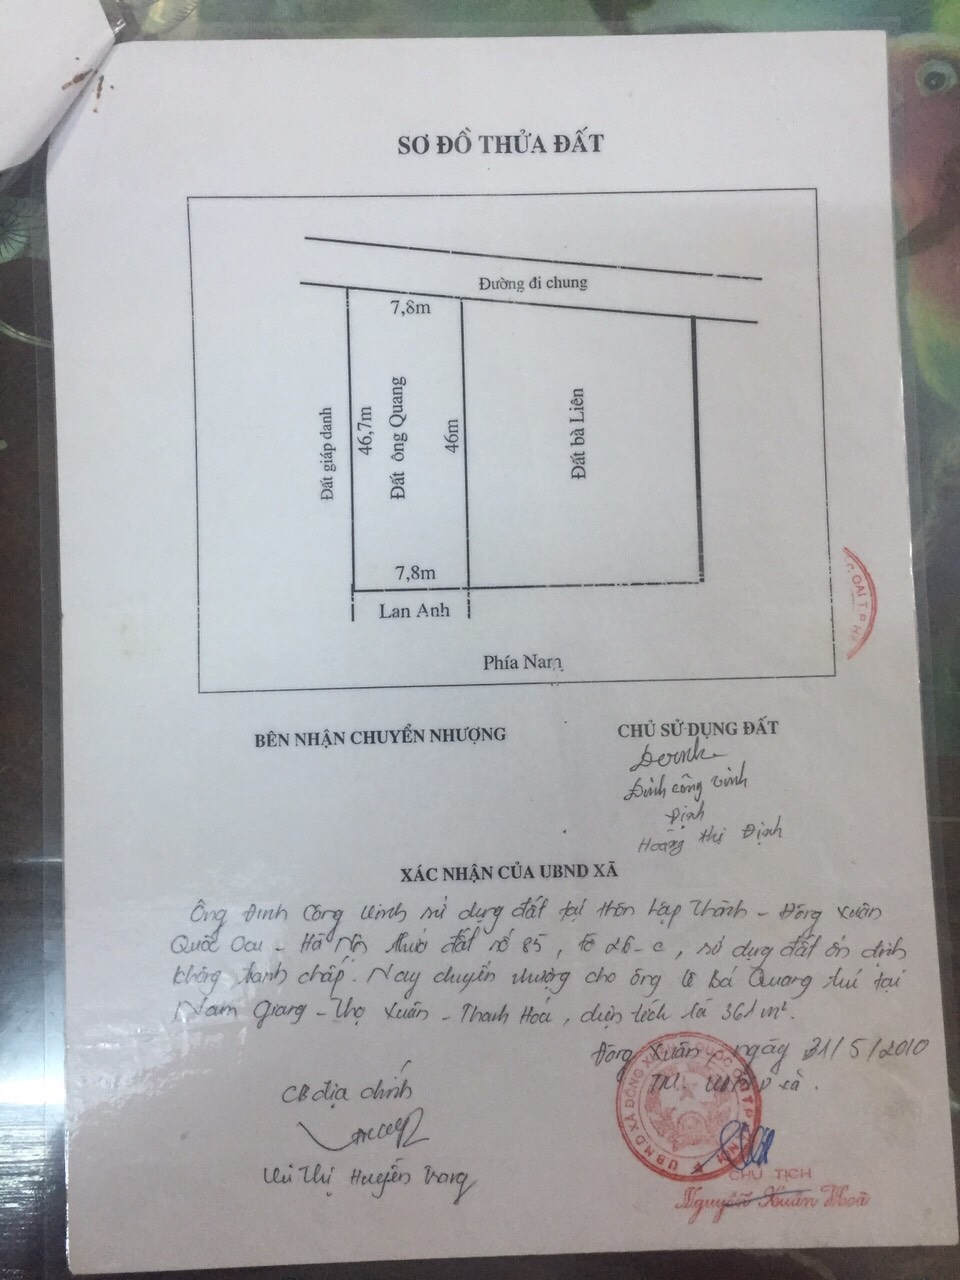 SƠ ĐỒ THỬA ĐẤT
Đường đi chung
7,8m
Đất giáp danh
46,7m
Đất ông Quang
46m
Đất bà Liên
7,8m
Lan Anh
Phía Nam
C. OAI T.P H
BÊN NHẬN CHUYỂN NHƯỢNG
CHỦ SỬ DỤNG ĐẤT
Đinh công vinh
Định
Hoàng thị Định
XÁC NHẬN CỦA UBND XÃ
Ông Đinh Công Vinh sử dụng đất tại thôn Lập Thành - Đông Xuân
Quốc Oai - Hà Nội thửa đất số 85, tờ 26-c, sử dụng đất ổn định
không tranh chấp. Nay chuyển nhượng cho ông lê Bá Quang trú tại
Nam Giang - Thọ Xuân - Thanh Hoá, diện tích là 361m².
Đông Xuân, ngày 31/5/2010
TM. UBND xã.
CB địa chính
Vũ Thị Huyền Trang
UBND XÃ ĐÔNG XUÂN QUỐC OAI T.P
CHỦ TỊCH
Nguyễn Xuân Hoà